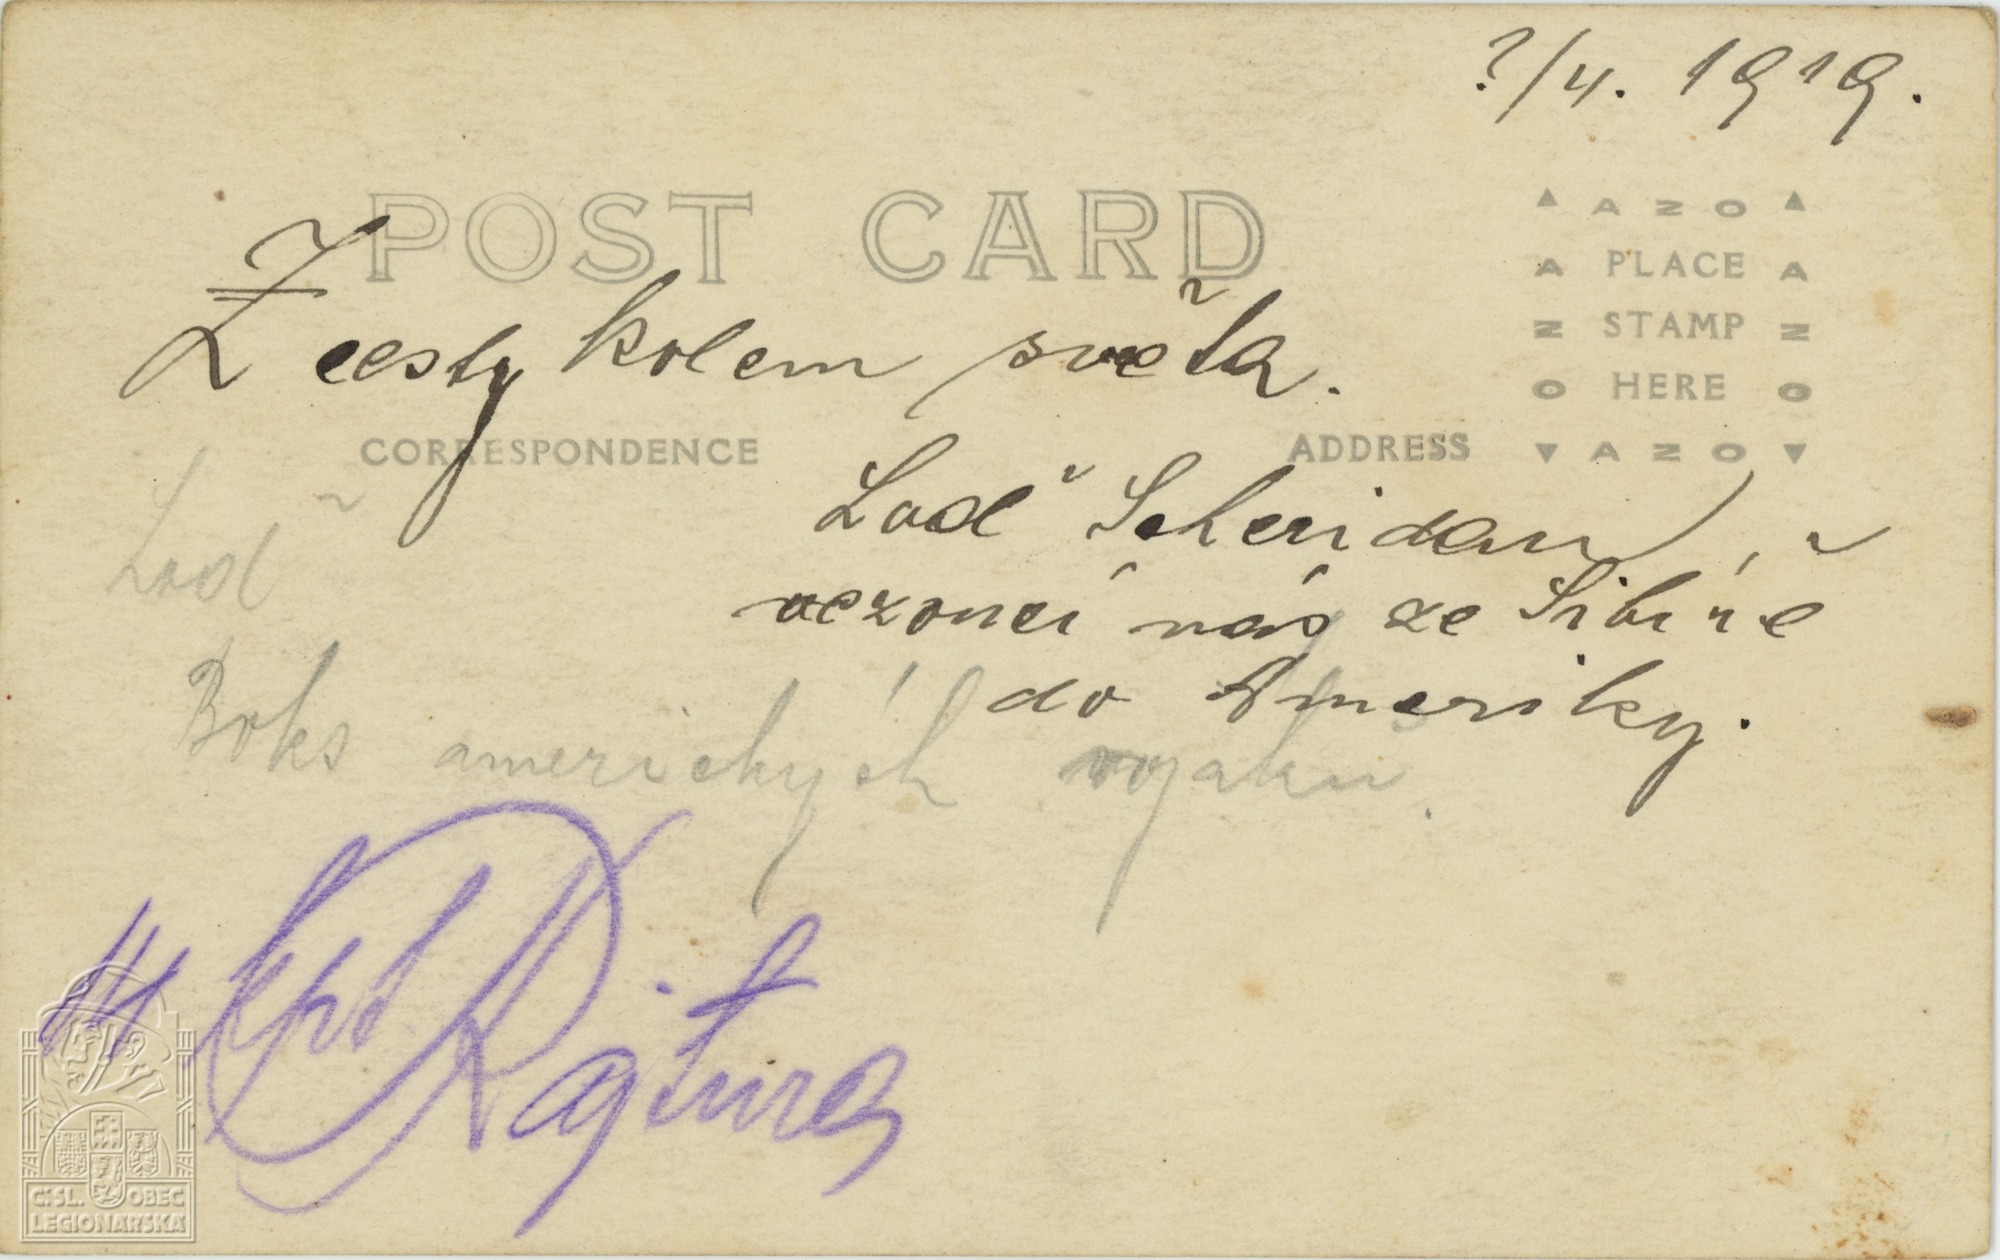 ?/4. 1919.
POST CARD
Z cesty kolem světa.
AZO
PLACE
STAMP
HERE
AZO
CORRESPONDENCE
ADDRESS
Loď Scheridan,
vezoucí nás ze Sibíře
do Ameriky.
Loď
Boks amerických vojáků.
kpt
ČSL. OBEC
LEGIONÁŘSKÁ